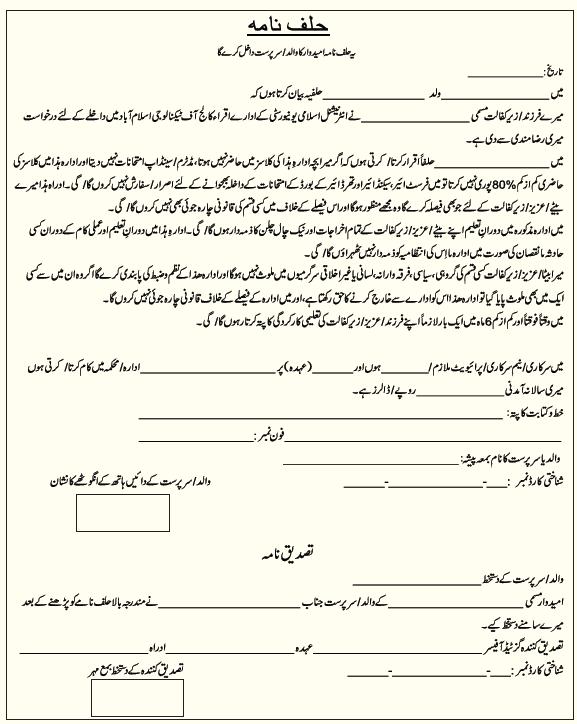 حلف نامہ
یہ حلف نامہ امیدوار کا والد/سرپرست داخل کرے گا
تاریخ:____________
میں ______________ ولد ______________ حلفیہ بیان کرتا ہوں کہ
میرے فرزند/زیر کفالت مسمی ______________ نے انٹرنیشنل اسلامی یونیورسٹی کے ادارے اقراء کالج آف ٹیکنالوجی اسلام آباد میں داخلے کے لئے درخواست
میری رضا مندی سے دی ہے۔
میں ______________ حلفاً اقرار کرتا/کرتی ہوں کہ اگر میرا بچہ ادارہ ہذا کی کلاسز میں حاضر نہیں ہوتا، مڈٹرم/سینڈاپ امتحانات نہیں دیتا اور ادارہ ہذا میں کلاسز کی
حاضری کم از کم %80 پوری نہیں کرتا تو میں فرسٹ ائیر، سیکنڈ ائیر اور تھرڈ ائیر کے بورڈ کے امتحانات کے داخلہ بھجوانے کے لئے اصرار/سفارش نہیں کروں گا/گی۔ اور ادارہ ہذا میرے
بیٹے/عزیز/زیر کفالت کے لئے جو بھی فیصلہ کرے گا وہ مجھے منظور ہوگا اور اس فیصلے کے خلاف میں کسی قسم کی قانونی چارہ جوئی بھی نہیں کروں گا/گی۔
میں ادارہ مذکورہ میں دوران تعلیم اپنے بیٹے/عزیز/زیر کفالت کے تمام اخراجات اور نیک چال چلن کا ذمہ دار ہوں گا/گی۔ ادارہ ہذا میں دوران تعلیم اور عملی کام کے دوران کسی
حادثہ یا نقصان کی صورت میں ادارہ یا اس کی انتظامیہ کو ذمہ دار نہیں ٹھہراؤں گا/گی۔
میرا بیٹا/عزیز/زیر کفالت کسی قسم کی گروہی، سیاسی، فرقہ وارانہ، لسانی یا غیر اخلاقی سرگرمیوں میں ملوث نہیں ہوگا اور ادارہ ھذا کے نظم و ضبط کی پابندی کرے گا اگر وہ ان میں سے کسی
ایک میں بھی ملوث پایا گیا تو ادارہ ھذا اس کو ادارے سے خارج کرنے کا حق رکھتا ہے، اور میں ادارہ کے فیصلے کے خلاف قانونی چارہ جوئی نہیں کروں گا۔
میں وقتاً فوقتاً اور کم از کم 6 ماہ میں ایک بار لازماً اپنے فرزند/عزیز/زیر کفالت کی تعلیمی کارکردگی کا پتہ کرتا رہوں گا/گی۔
میں سرکاری/نیم سرکاری/پرائیویٹ ملازم/________ ہوں اور ________ (عہدہ) پر ______________ ادارہ/محکمہ میں کام کرتا/کرتی ہوں
میری سالانہ آمدنی ______________ روپے/ڈالرز ہے۔
خط و کتابت کا پتہ: ____________________________
____________________فون نمبر: ______________
والد یا سرپرست کا نام بمعہ پیشہ: ____________________
شناختی کارڈ نمبر :____-______________-______ والد/سرپرست کے دائیں ہاتھ کے انگوٹھے کا نشان
تصدیق نامہ
والد/سرپرست کے دستخط ______________
امیدوار مسمی ______________ کے والد/سرپرست جناب ______________ نے مندرجہ بالا حلف نامے کو پڑھنے کے بعد
میرے سامنے دستخط کیے۔
تصدیق کنندہ گزٹیڈ آفیسر ______________ عہدہ ______________ ادراہ ______________
شناختی کارڈ نمبر :____-______________-______ تصدیق کنندہ کے دستخط بمع مہر